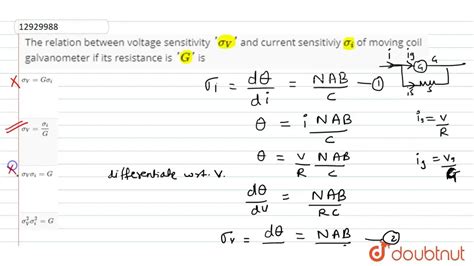 12929988
The relation between voltage sensitivity 'σV' and current sensitiviy σi of moving coil
galvanometer if its resistance is 'G' is
σV = Gσi
σV = σi/G
σVσi = G
σ²Vσ²i = G
σi = dθ/di = NAB/C — ①
θ = i NAB/C
θ = V/R NAB/C
differentiate w.r.t. V.
dθ/dV = NAB/RC
σV = dθ = NAB — ②
i ig G G
is S
ig = V/R
ig = Vg/G
doubtnut